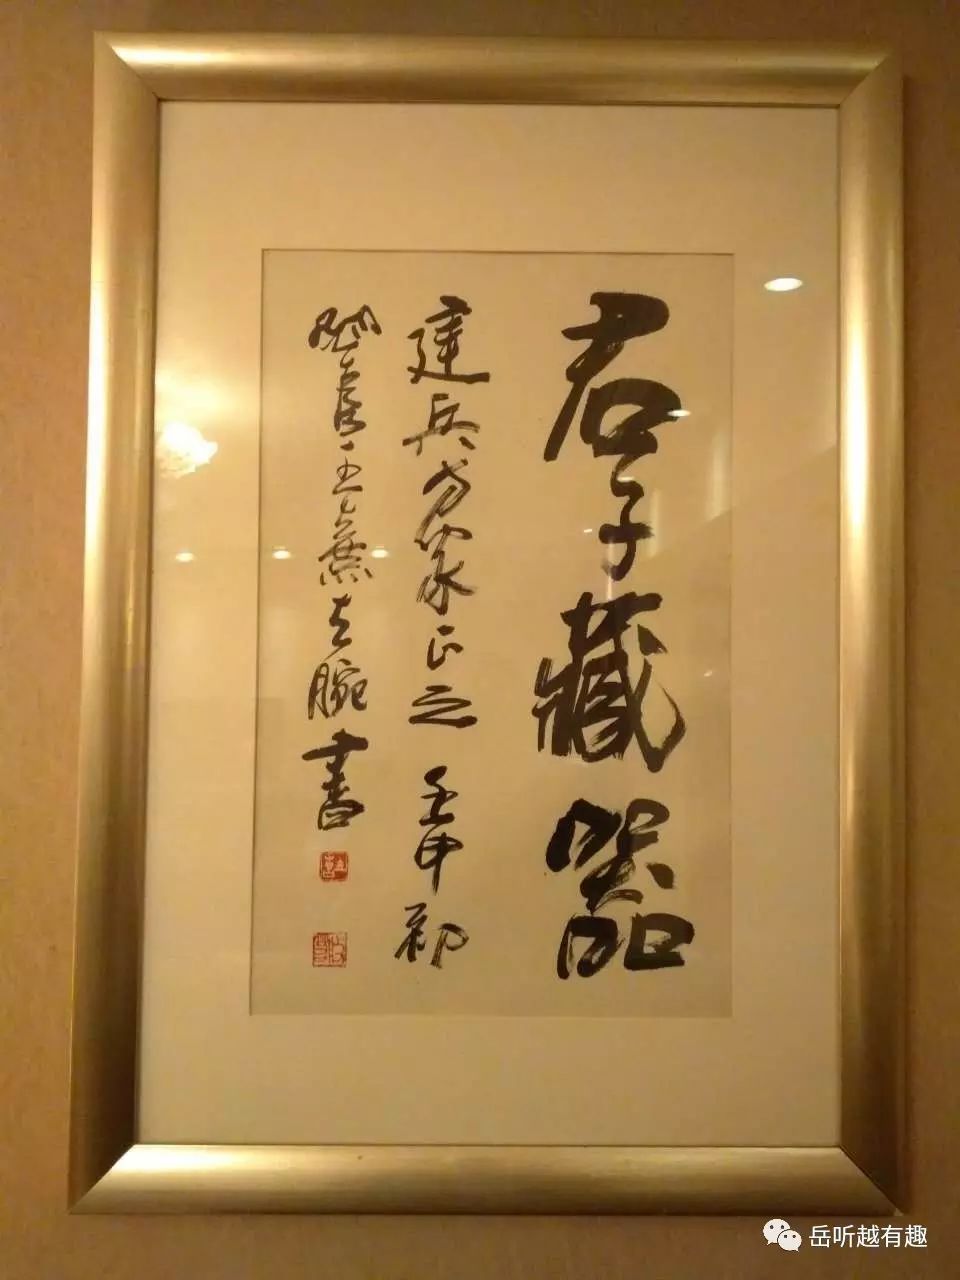 君子藏器
建兵方家正之 壬申初
左腕書
岳听越有趣